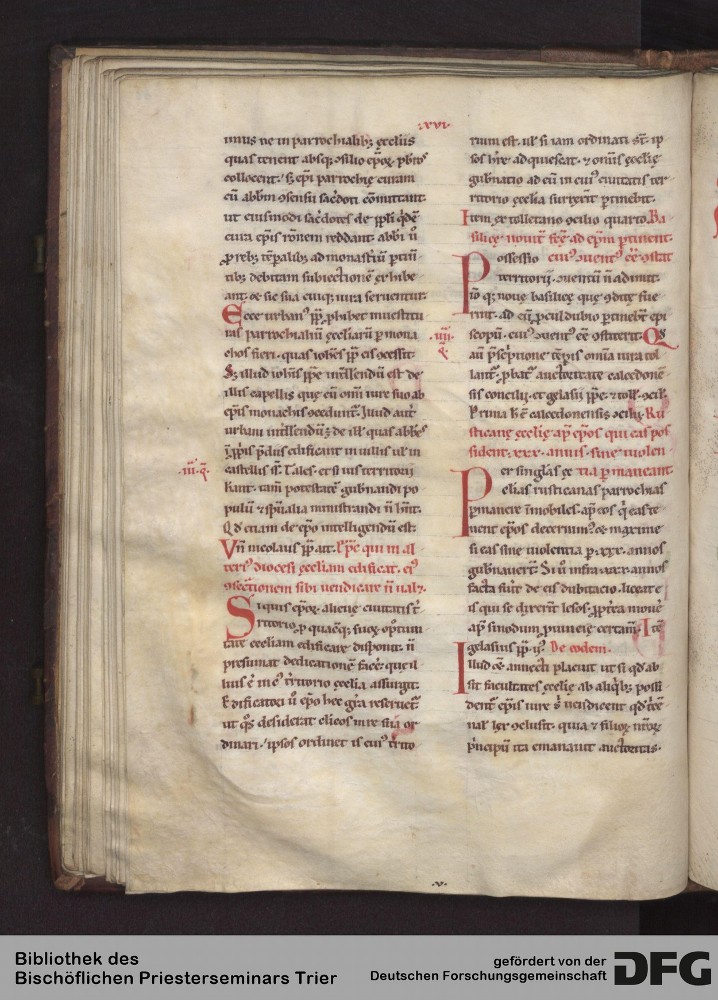 ·xvi·
mus ne in parrochialib; ęccl'iis
quas tenent absq; ɔsilio ep̄oꝝ pbr̄os
collocent. s; ep̄i parrochię curam
cū abb̄m ɔsensu sac̄doti cōmittant.
ut eiusmodi sac̄dotes de
cura ep̄is rōnem reddant. abb̄i ū
ꝓ reb; tēpalib; ad monast'iū ꝑtin̄
tib; debitam subiectionē exhibe
ant. & sic sua cuiq; iura seruentur.
Ecce urban' pp̄ phibet inuestitu
ras parrochialiū ęccl'iarū ꝑ mona
chos fieri. quas ioh'es pp̄ eis ɔcessit.
S; illud ioh'is pp̄e intell'endū est de
illis capellis quę cū om̄i iure suo ab
ep̄is monachis ɔcedunt'. Illud aut'
urbani intell'endū; de ill' quas abb'es
ꝓpis p̄dus edificant in uillis ul' in
castellis
hant. tam̄ potestatē gub'nandi po
pulū & sp̄ualia ministrandi ñ hn̄t.
Qd' etiam de ep̄o intelligendū est.
Vn̄ nicolaus pp̄ ait. Ep̄c qui in al
teri' diocesi ęccl'iam edificat. ei'
ɔsec̄tionem sibi uendicare ñ ual'.
Si quis ep̄oꝝ alienę ciuitatis t'
ritorio ꝓ quacūq; suoꝝ optuni
tate ęccl'iam edificare disponit. ñ
presumat dedicationē fac'e. quę il
lius ē in c' t'ritorio ęccl'ia assurgit.
Edificatori ū ep̄o hec gr̄a reseruet'.
ut q̄s desiderat cl'icos in re sua or
dinari. ipsos ordinet is cui' t'rito
·iii·q̄·
rium est. ul' si iam ordinati st̄. ip
sos hr̄e adquiescat. & om̄is ęccl'ię
gub'natio ad eū in cui' ciuitatis ter
ritorio ęccl'ia surrexit ꝑtinebit.
Item ex tolletano ɔcilio quarto. Ba
silicę nouit' fc̄ę ad ep̄m ꝑtinent.
Possessio cui' ɔuent' eē ɔstat
territorii. ɔuentū ñ adimit.
iō q; nouę basilicę quę ɔditę fue
rint. ad eū ꝓculdubio ꝑtinebt' epi
scopū. cui' ɔuent' eē ɔstiterit. Qđ
·iiii·
q̄·
aū p̄sc'ptione tēpis om̄ia iura tol
lant'. ꝓbat' auctoritate calcedonē
sis concilii. & gelasii pp̄e. & toll' ɔcil'.
calcedonensis ɔcilii. Ru
sticanę ęccl'ię ap' ep̄os qui eas pos
sident. xxx. annis. sine uiolen
tia ꝑmaneant.
Per singlas
ecl'ias rusticanas parrochias
ꝑmanere īmobiles. ap' eos q' eas te
nent ep̄os decernim'. & maxime
si eas sine uiolentia ꝑ xxx. annos
gub'nauert'. Si ū infra xxx. annos
facta fuit de eis dubitacio. liceat e
is qui se dixerit lesos. ꝓpt'ea mouē
ap' sinodum ꝓuincię certam̄. Itē
gelasius pp̄ De eodem.
Illud & annecti placuit ut si qđ ab
sit facultates ęccl'ię ab aliqb; possi
dent' ep̄is iure s' uendicent qđ t'cē
nal' lex ɔclusit. quia & filioꝝ nr̄oꝝ
p'ncipū ita emanauit auctoritas.
·v·
Bibliothek des
Bischöflichen Priesterseminars Trier
gefördert von der
Deutschen Forschungsgemeinschaft
DFG